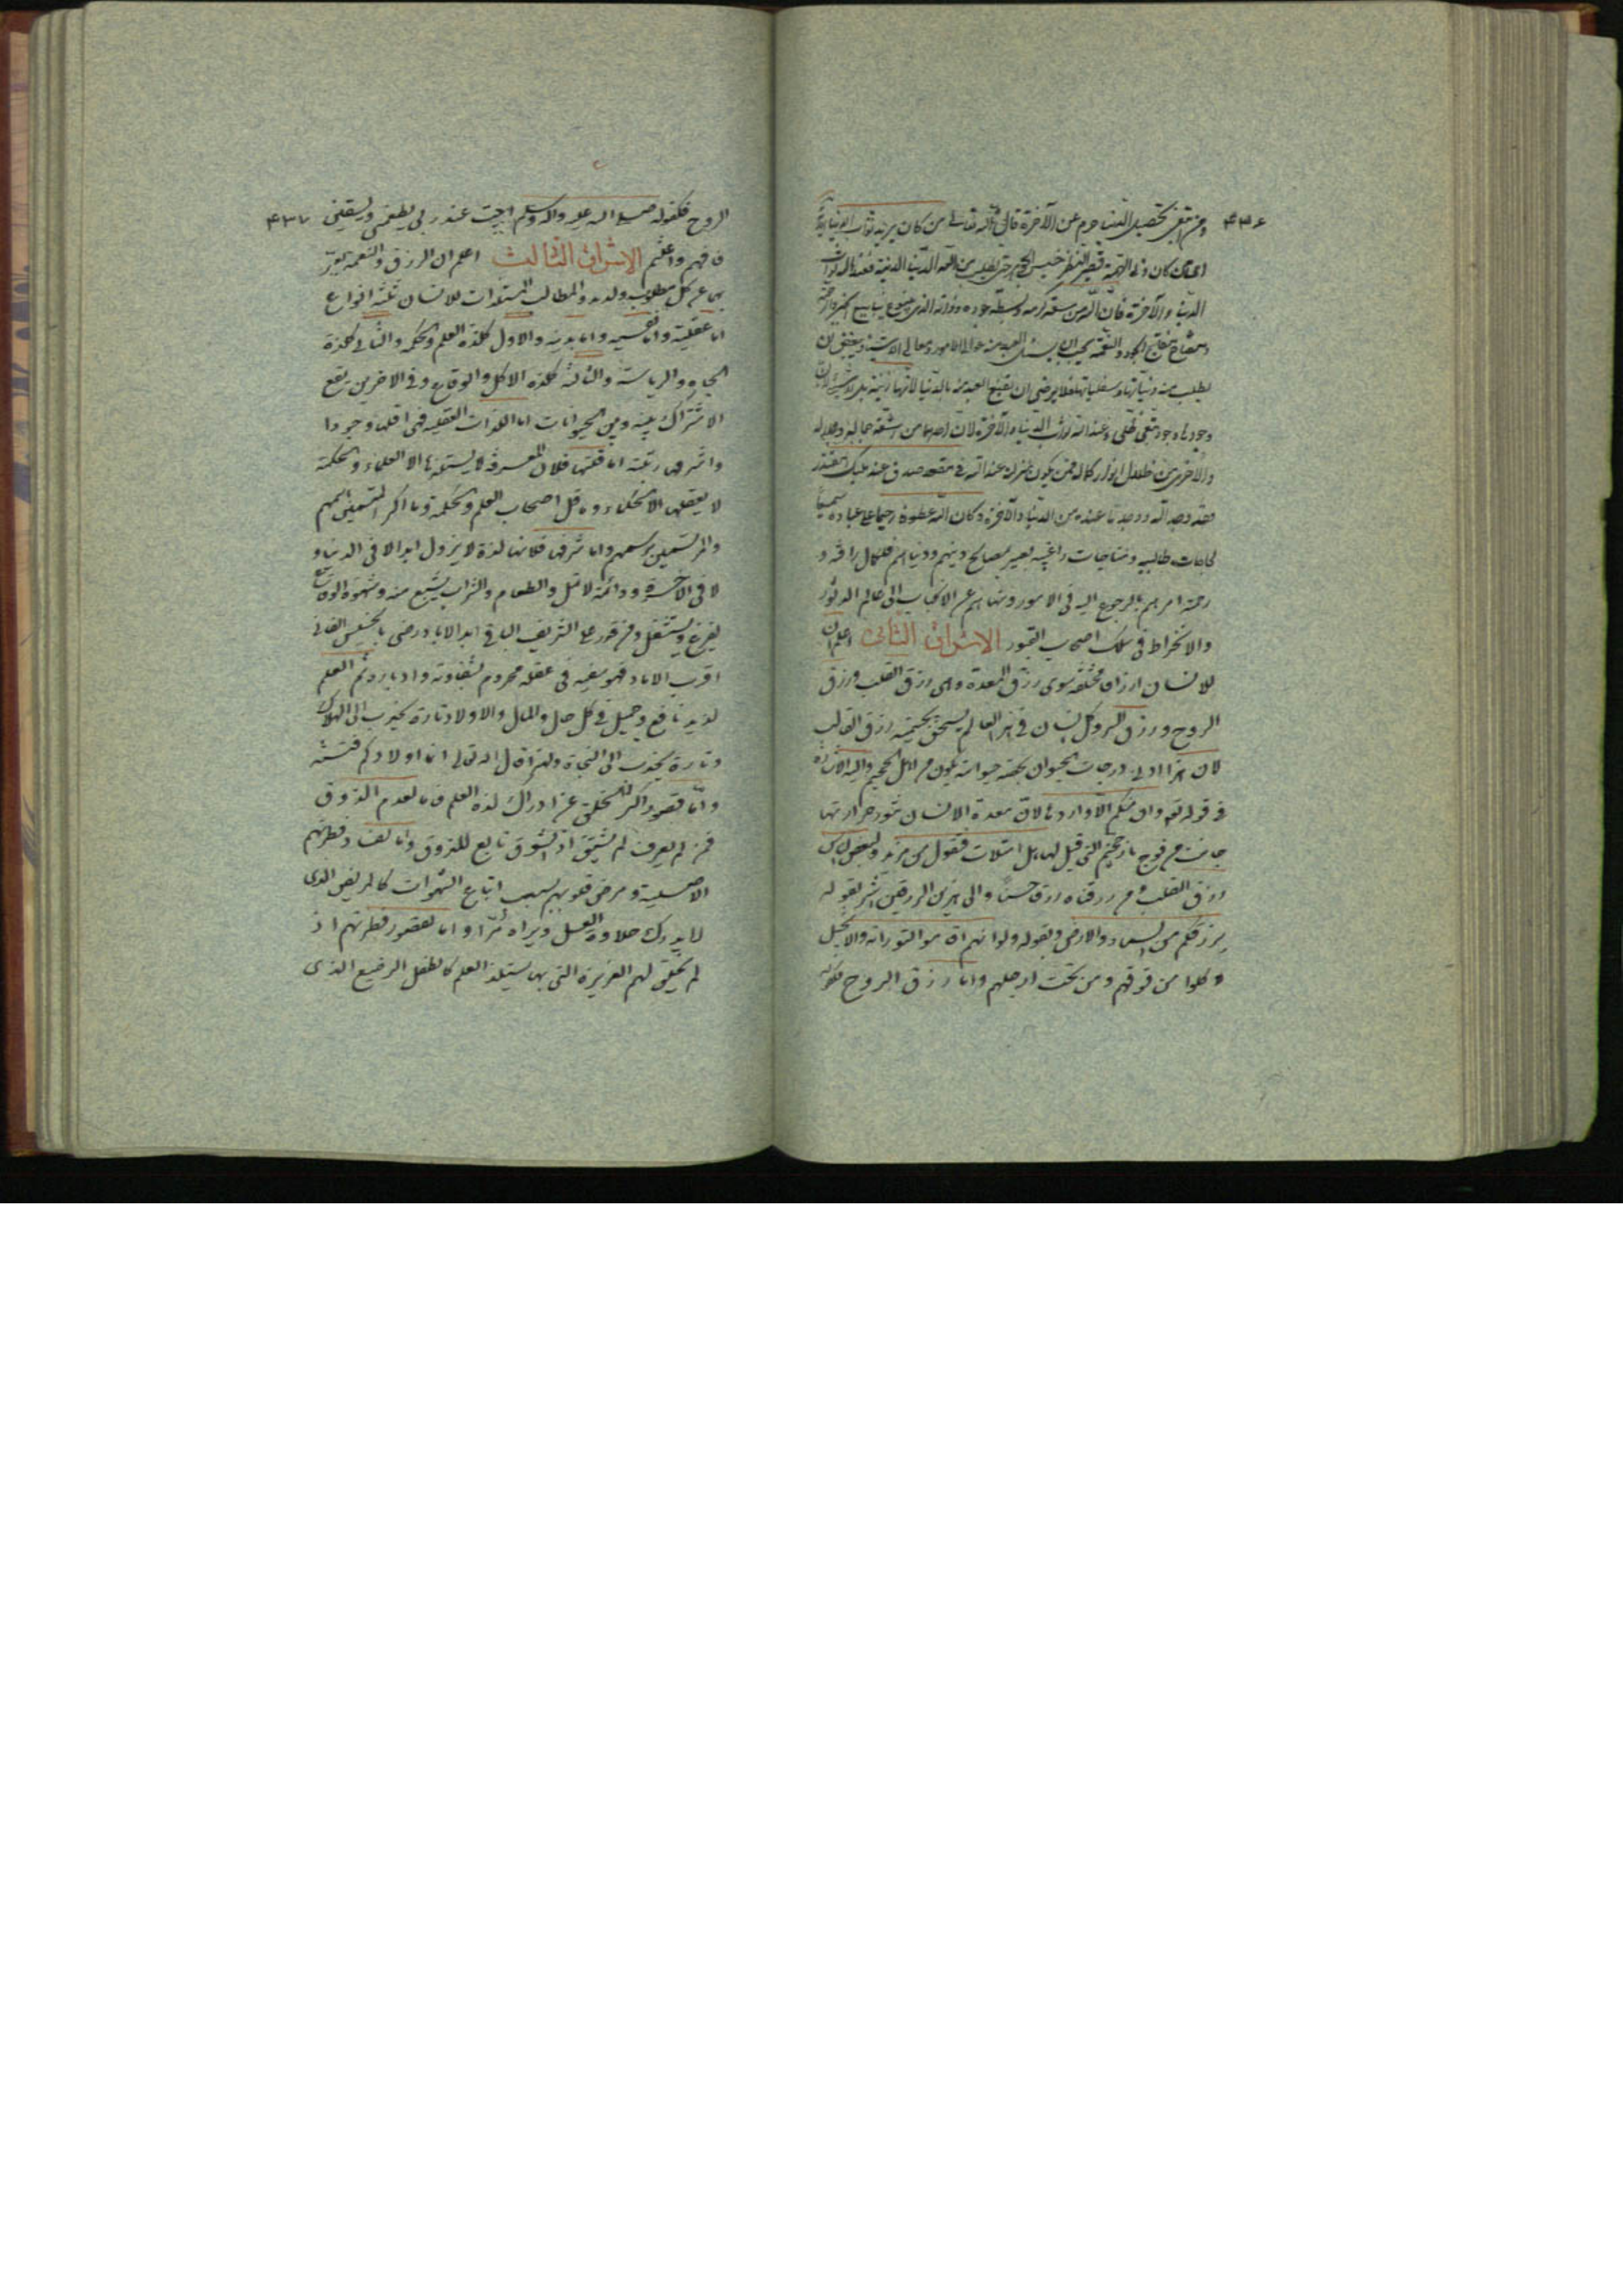 ۴۳۶
ومن قنع بتحصيل الدنيا حرم عن الآخرة قال الله تعالى من كان يريد ثواب الدنيا
الدنيا والآخرة فان الله من سعة كرمه وبسطة جوده
يطلب منه دنياتها وسفلياتها فلا يرضى ان يقنع العبد منه بالدنيا لانها
وعند الله ثواب الدنيا والآخرة لان احدهما من اشعة جماله وجلاله
والاخرى من ظلال انوار كماله فمن يكون منزله عند الله في مقعد صدق عند مليك مقتدر
فقد وجد الله ووجد ما عنده من الدنيا والآخرة وكان الله عطوفا رحيما على عباده سميعا
لحاجات طالبيه ومناجات راغبيه بصير بمصالح دينهم ودنياهم فلكمال رأفته و
رحمته امرهم بالرجوع اليه في الامور ونهاهم عن الانجذاب الى عالم الدثور
والانخراط في سلك اصحاب القبور الاشراق الثاني اعلم ان
للانسان ارزاق مختلفة سوى رزق المعدة وهى رزق القلب ورزق
الروح ورزق السر وكل انسان في هذا العالم يستحق بجسميته رزق القالب
لان هذا ادنى درجات الحيوان بحصة حيوانية يكون من اهل الجحيم واليه الاشارة
في قوله تعم وان منكم الا واردها لان معدة الانسان تنور حرارتها
جائت من فوح نار جهنم التى قيل لها هل امتلات فتقول هل من مزيد ولبعض الناس
رزق القلب ومن رزقناه رزقا حسنا والى هذين الرزقين اشير بقوله
يرزقكم من السماء والارض وبقوله ولو انهم اقاموا التوراة والانجيل
وكلوا من فوقهم ومن تحت ارجلهم واما رزق الروح فكقوله
۴۳۷
الروح فكقوله صلى الله عليه واله وسلم ابيت عند ربى يطعمنى ويسقينى
فافهم واغتنم الاشراق الثالث اعلم ان الرزق والنعمة يعبر
بهما عن كل مطلوب ولذيذ والمطالب المستلذات للانسان ثلثة انواع
اما عقلية واما نفسية واما بدنية والاول كلذة العلم والحكمة والثانى كلذة
الجاه والرياسة والثالث كلذة الاكل والوقاع وفي الاخرين يقع
الاشتراك بينه وبين الحيوانات اما اللذات العقلية فهى اقلها وجودا
واشرفها رتبة اما قلتها فلان المعرفة لا يستلذها الا العلماء والحكمة
لا يعقلها الا الحكماء وما اقل اصحاب العلم والحكمة وما اكثر المتسمين باسمهم
والمرتسمين برسمهم واما شرفها فلانها لذة لا يزول ابدا لا في الدنيا و
لا في الآخرة ودائمة لا تمل والطعام والشراب يشبع منه وشهوة الوقاع
يفرغ ويستثقل ومن قدر على الشريف الباقى ابد الاباد ورضى بالخسيس الفانى
اقرب الاماد فهو سفيه في عقله محروم بشقاوته وادباره ثم العلم
لذيذ نافع وجميل في كل حال والمال والاولاد تارة يجذب الى الهلاك
وتارة يجذب الى النجاة ولهذا قال الله تعالى انما اولادكم فتنة
واما قصور اكثر الخلق عن ادراك لذة العلم فاما لعدم الذوق
فمن لم يعرف لم يشتق اذ الشوق تابع للذوق واما لفساد فطرتهم
الاصلية ومرض قلوبهم بسبب اتباع الشهوات كالمريض الذى
لا يدرك حلاوة العسل ويراه مرا واما لقصور فطرتهم اذ
لم يخلق لهم الغريزة التى بها يستلذ العلم كالطفل الرضيع الذى